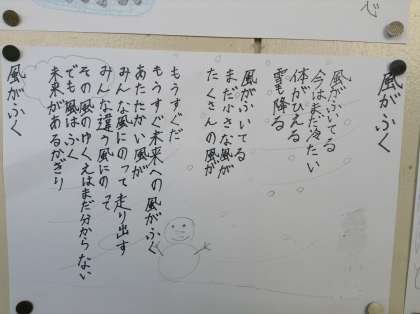 風がふく
風がふいてる
今はまだ冷たい
体がひえる
雪も降る
風がふいてる
まだ小さな風が
たくさんの風が
もうすぐだ
もうすぐ未来への風がふく
あたたかい風が
みんな風にのって走り出す
みんな違う風にのって
その風のゆくえはまだ分からない
でも風はふく
未来があるかぎり
風がふく
で